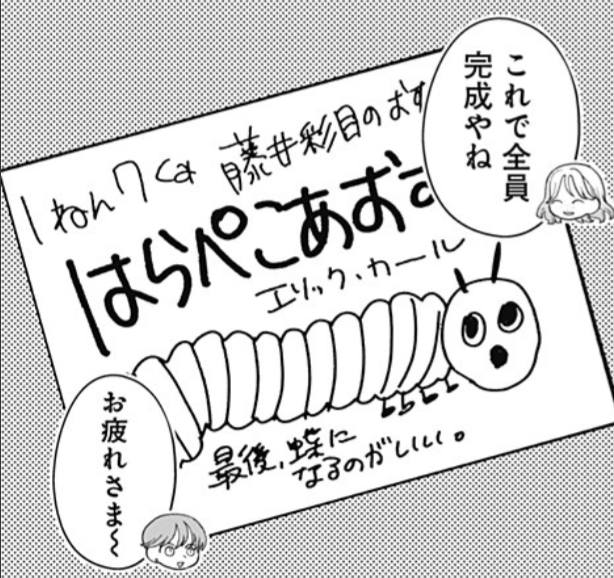 これで全員
完成やね
1ねん7くみ 藤井彩目のおす
はらぺこあお
エリック・カール
最後、蝶に
なるのがいい。
お疲れさま〜